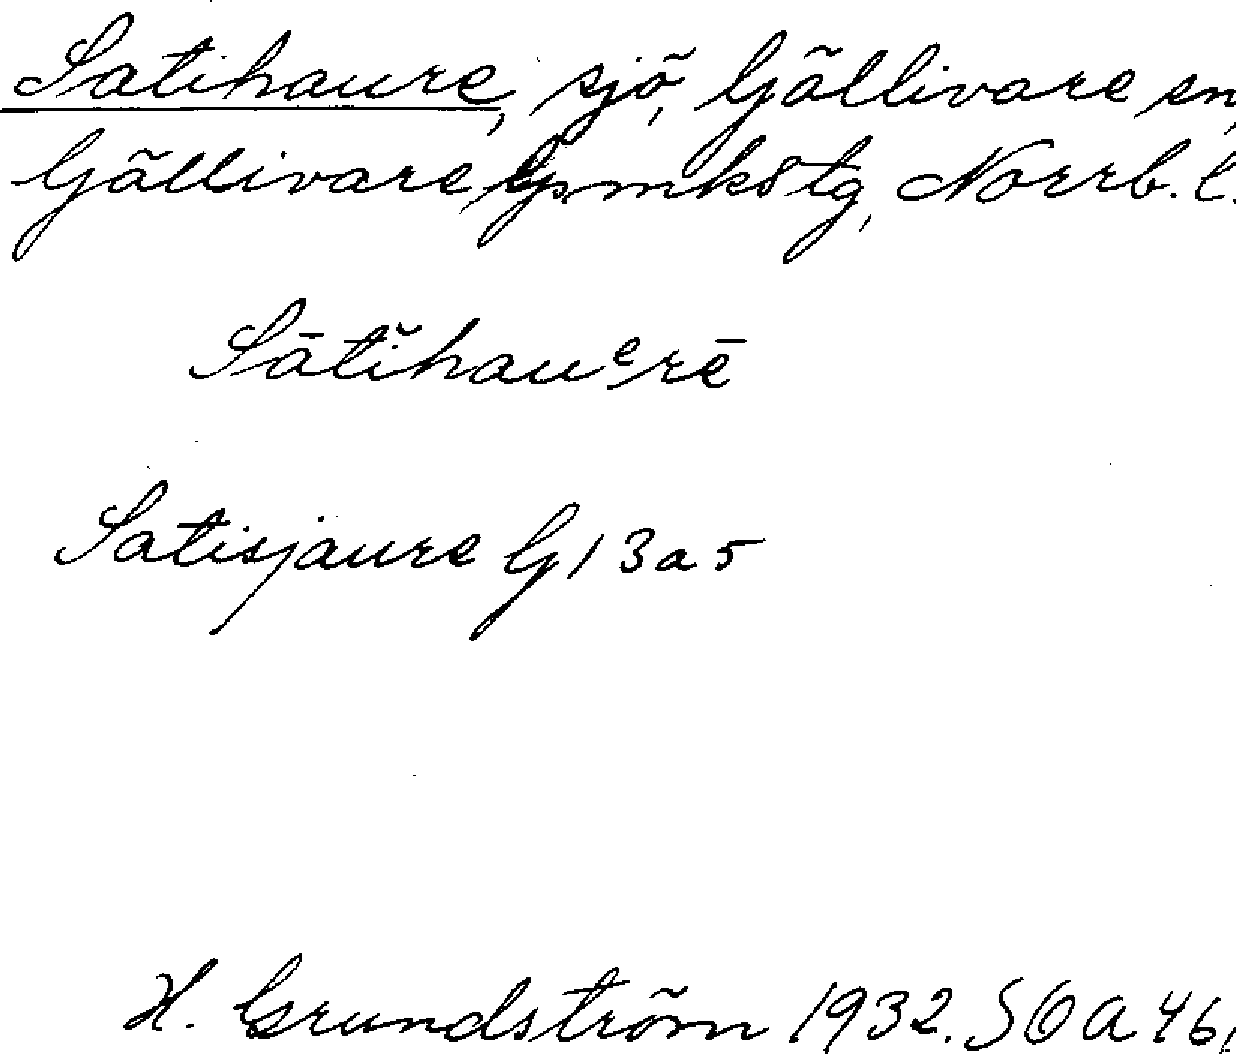 Satihaure, sjö, Gällivare sn,
Gällivare lpmkstg, Norrb. l.
Sātĭhauᵉrē
Satisjaure G 13 a 5
H. Grundström 1932. SOA 46,